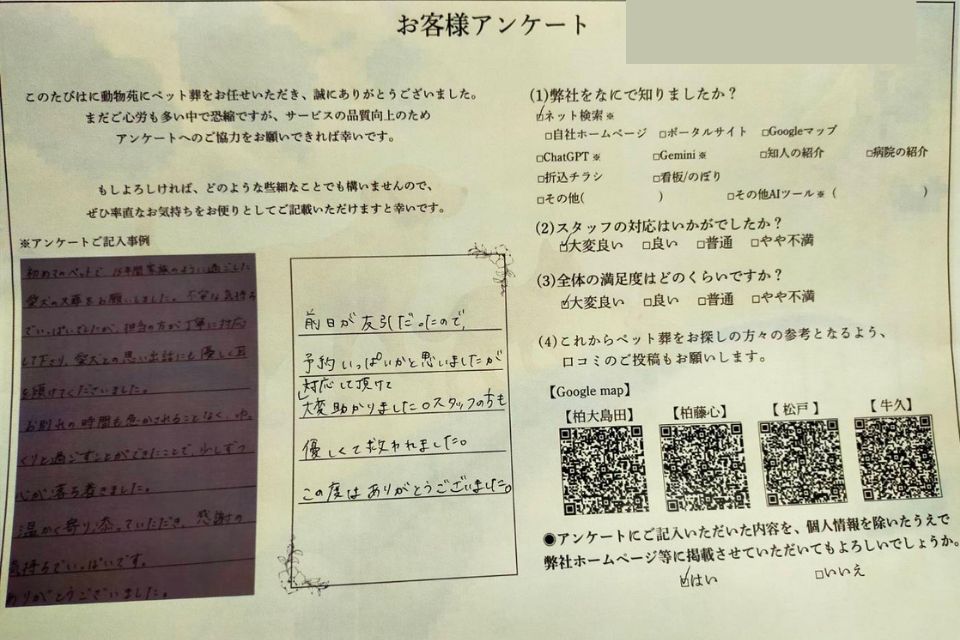 お客様アンケート
このたびはに動物苑にペット葬をお任せいただき、誠にありがとうございました。
まだご心労も多い中で恐縮ですが、サービスの品質向上のため
アンケートへのご協力をお願いできれば幸いです。
もしよろしければ、どのような些細なことでも構いませんので、
ぜひ率直なお気持ちをお便りとしてご記載いただけますと幸いです。
※アンケートご記入事例
初めてのペットで、15年間家族のように過ごした
愛犬の火葬をお願いしました。不安な気持ち
でいっぱいでしたが、担当の方が丁寧に対応
して下さり、愛犬との思い出話にも優しく耳
を傾けてくださいました。
お別れの時間も急かされることなく、ゆっ
くりと過ごすことができたことで、少しずつ
心が落ち着きました。
温かく寄り添っていただき、感謝の
気持ちでいっぱいです。
ありがとうございました。
前日が友引だったので、
予約いっぱいかと思いましたが
対応して頂けて
大変助かりました。スタッフの方も
優しくて救われました。
この度はありがとうございました。
(1)弊社をなにで知りましたか？
☑ネット検索※
□自社ホームページ □ポータルサイト □Googleマップ
□ChatGPT※ □Gemini※ □知人の紹介 □病院の紹介
□折込チラシ □看板/のぼり
□その他( ) □その他AIツール※（ ）
(2)スタッフの対応はいかがでしたか？
☑大変良い □良い □普通 □やや不満
(3)全体の満足度はどのくらいですか？
☑大変良い □良い □普通 □やや不満
(4)これからペット葬をお探しの方々の参考となるよう、
口コミのご投稿もお願いします。
【Google map】
【柏大島田】 【柏藤心】 【松戸】 【牛久】
◉アンケートにご記入いただいた内容を、個人情報を除いたうえで
弊社ホームページ等に掲載させていただいてもよろしいでしょうか。
☑はい □いいえ